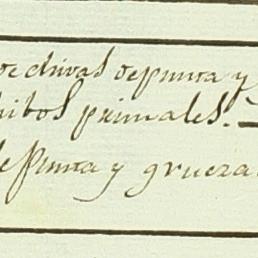 de chivas de punta y
hibos primales.
de punta y grueza